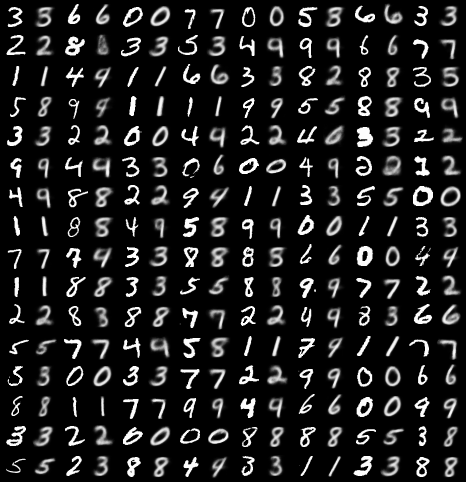 3 5 6 6 0 0 7 7 0 0 5 3 6 6 3 3
2 2 8 8 3 3 5 3 4 9 9 9 6 6 7 7
1 1 4 9 1 1 6 6 3 3 8 2 8 8 3 5
5 8 9 9 1 1 1 1 9 9 5 5 8 8 9 9
3 3 2 2 0 0 4 9 2 2 4 0 3 3 2 2
9 9 4 9 3 3 0 6 0 0 4 9 2 2 1 2
4 9 8 8 2 2 9 4 1 1 3 3 5 5 0 0
1 1 8 8 4 9 5 8 9 9 0 0 1 1 3 3
7 7 7 9 3 3 8 8 8 5 6 6 0 0 4 4
1 1 8 8 3 3 5 5 8 8 9 9 7 7 2 2
2 2 8 3 8 8 7 7 2 2 4 9 8 3 6 6
5 5 7 7 4 9 5 8 1 1 7 9 1 1 7 7
5 3 0 0 3 3 7 7 2 2 9 9 0 0 6 6
8 8 1 1 7 7 9 9 4 9 6 6 0 0 9 9
3 3 2 2 0 0 0 0 8 8 8 8 5 5 3 8
5 5 2 3 8 8 4 4 3 3 1 1 3 3 8 8